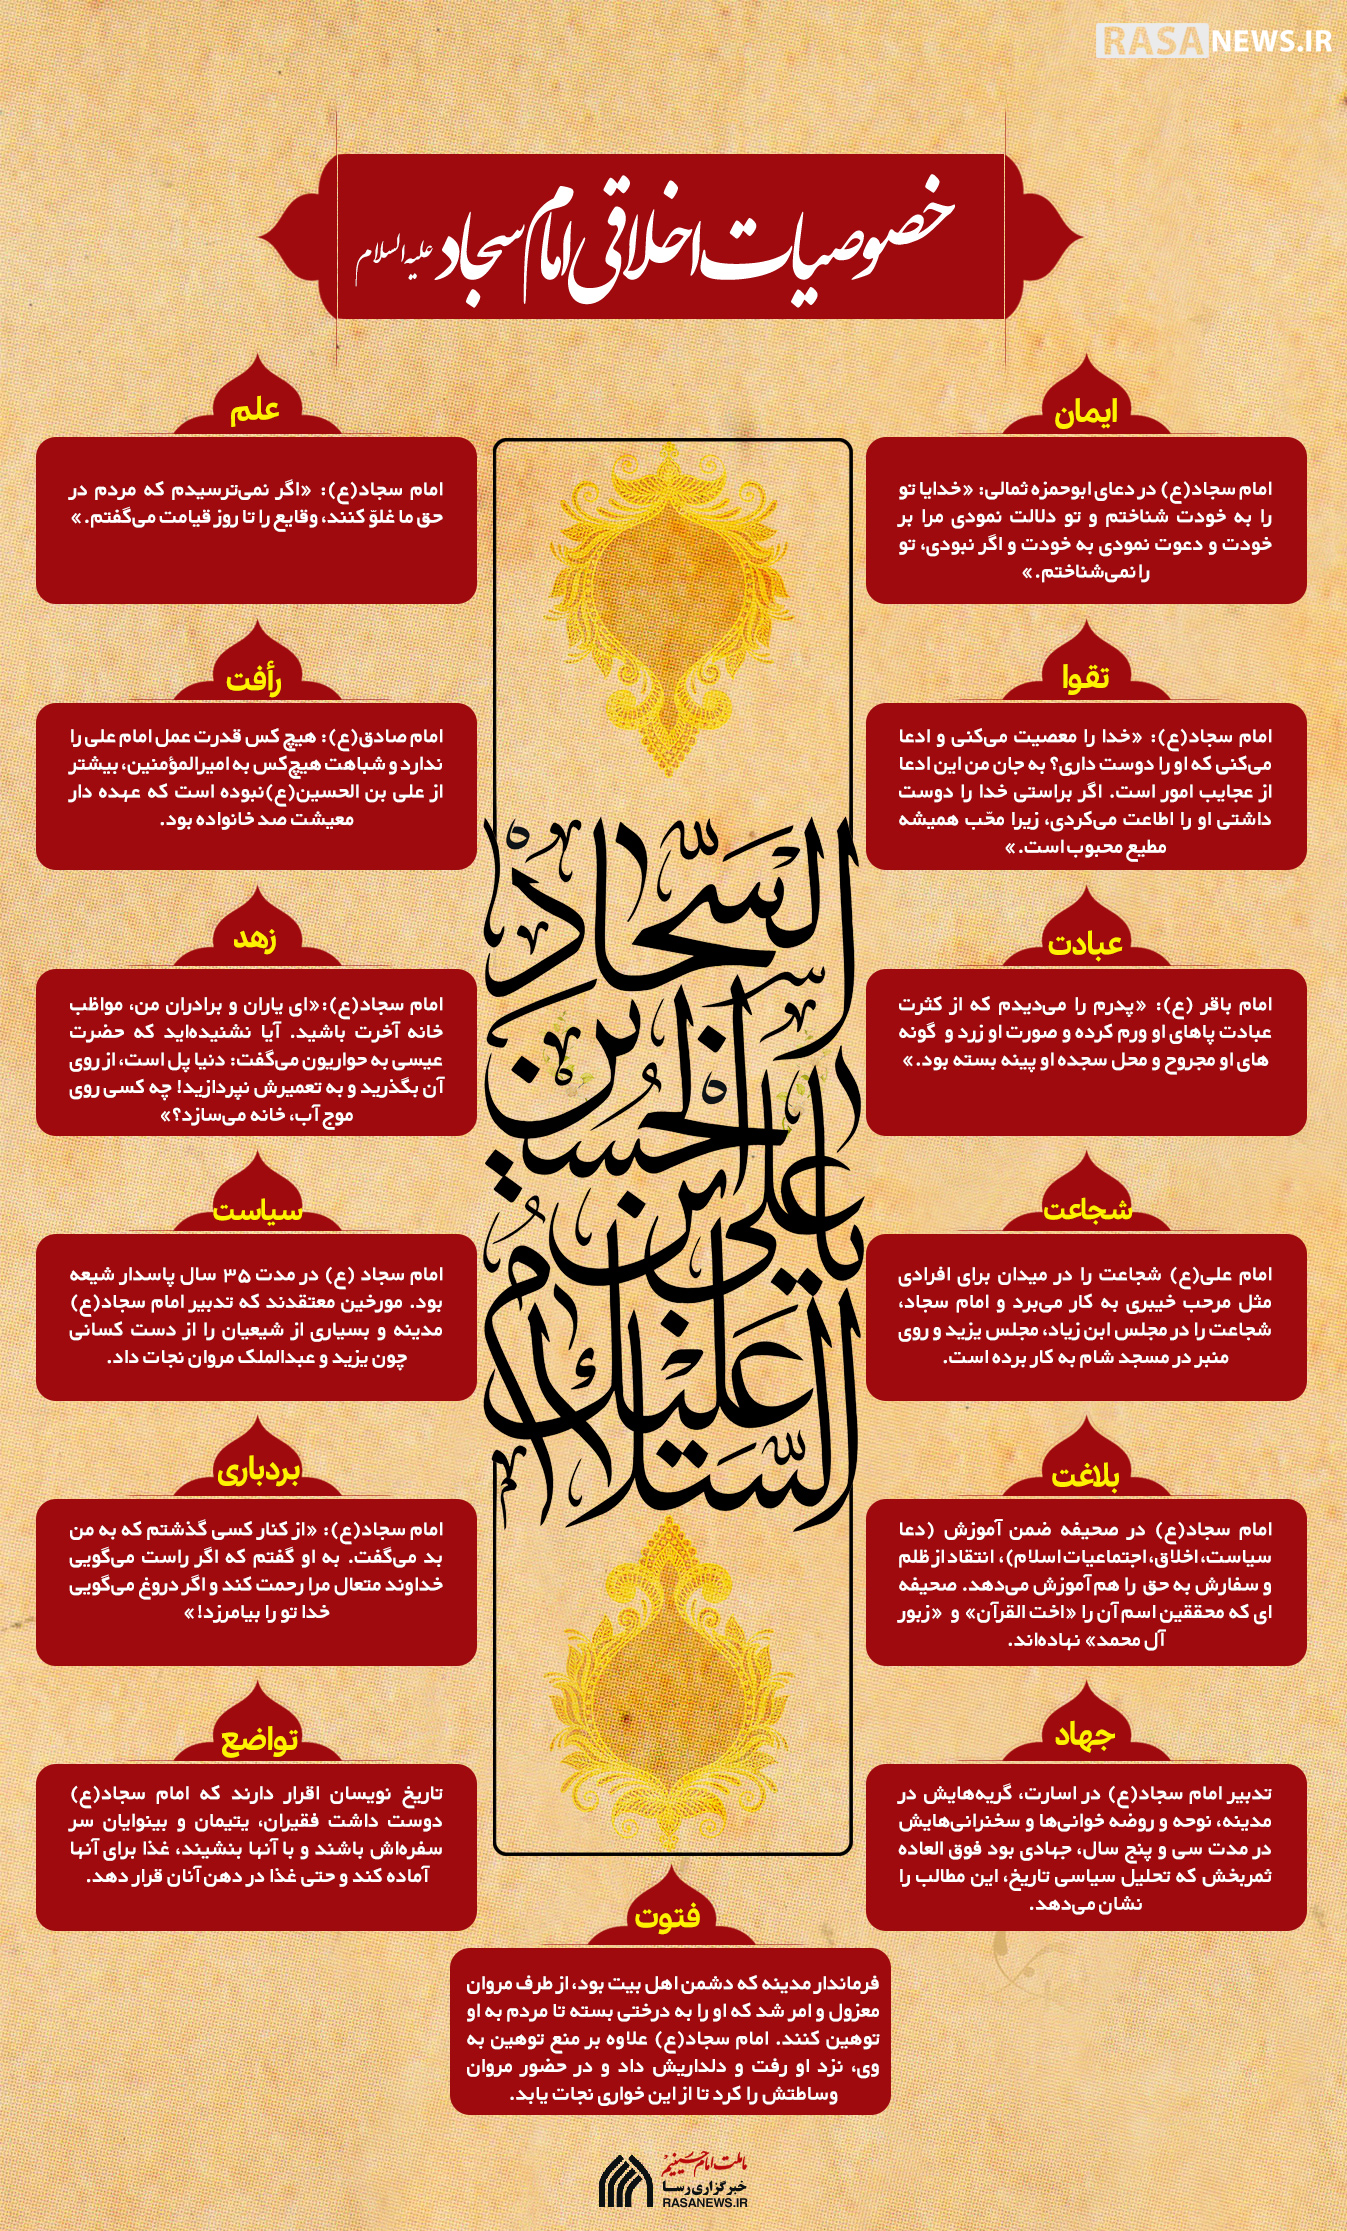 RASANEWS.IR
خصوصیات اخلاقی امام سجاد علیه السلام
ایمان
امام سجاد(ع) در دعای ابوحمزه ثمالی: «خدایا تو
را به خودت شناختم و تو دلالت نمودی مرا بر
خودت و دعوت نمودی به خودت و اگر نبودی، تو
را نمی‌شناختم.»
علم
امام سجاد(ع): «اگر نمی‌ترسیدم که مردم در
حق ما غلوّ کنند، وقایع را تا روز قیامت می‌گفتم.»
تقوا
امام سجاد(ع): «خدا را معصیت می‌کنی و ادعا
می‌کنی که او را دوست داری؟ به جان من این ادعا
از عجایب امور است. اگر براستی خدا را دوست
داشتی او را اطاعت می‌کردی، زیرا محّب همیشه
مطیع محبوب است.»
رأفت
امام صادق(ع): هیچ کس قدرت عمل امام علی را
ندارد و شباهت هیچ‌کس به امیرالمؤمنین، بیشتر
از علی بن الحسین(ع)نبوده است که عهده دار
معیشت صد خانواده بود.
عبادت
امام باقر (ع): «پدرم را می‌دیدم که از کثرت
عبادت پاهای او ورم کرده و صورت او زرد و گونه
های او مجروح و محل سجده او پینه بسته بود.»
زهد
امام سجاد(ع):«ای یاران و برادران من، مواظب
خانه آخرت باشید. آیا نشنیده‌اید که حضرت
عیسی به حواریون می‌گفت: دنیا پل است، از روی
آن بگذرید و به تعمیرش نپردازید! چه کسی روی
موج آب، خانه می‌سازد؟»
السلام علیک یا علی ابن الحسین السجاد
شجاعت
امام علی(ع) شجاعت را در میدان برای افرادی
مثل مرحب خیبری به کار می‌برد و امام سجاد،
شجاعت را در مجلس ابن زیاد، مجلس یزید و روی
منبر در مسجد شام به کار برده است.
سیاست
امام سجاد (ع) در مدت ۳۵ سال پاسدار شیعه
بود. مورخین معتقدند که تدبیر امام سجاد(ع)
مدینه و بسیاری از شیعیان را از دست کسانی
چون یزید و عبدالملک مروان نجات داد.
بلاغت
امام سجاد(ع) در صحیفه ضمن آموزش (دعا
سیاست، اخلاق، اجتماعیات اسلام)، انتقاد از ظلم
و سفارش به حق را هم آموزش می‌دهد. صحیفه
ای که محققین اسم آن را «اخت القرآن» و «زبور
آل محمد» نهاده‌اند.
بردباری
امام سجاد(ع): «از کنار کسی گذشتم که به من
بد می‌گفت. به او گفتم که اگر راست می‌گویی
خداوند متعال مرا رحمت کند و اگر دروغ می‌گویی
خدا تو را بیامرزد!»
جهاد
تدبیر امام سجاد(ع) در اسارت، گریه‌هایش در
مدینه، نوحه و روضه خوانی‌ها و سخنرانی‌هایش
در مدت سی و پنج سال، جهادی بود فوق العاده
ثمربخش که تحلیل سیاسی تاریخ، این مطالب را
نشان می‌دهد.
تواضع
تاریخ نویسان اقرار دارند که امام سجاد(ع)
دوست داشت فقیران، یتیمان و بینوایان سر
سفره‌اش باشند و با آنها بنشیند، غذا برای آنها
آماده کند و حتی غذا در دهن آنان قرار دهد.
فتوت
فرماندار مدینه که دشمن اهل بیت بود، از طرف مروان
معزول و امر شد که او را به درختی بسته تا مردم به او
توهین کنند. امام سجاد(ع) علاوه بر منع توهین به
وی، نزد او رفت و دلداریش داد و در حضور مروان
وساطتش را کرد تا از این خواری نجات یابد.
ما ملت امام حسینیم
خبرگزاری رسا
RASANEWS.IR